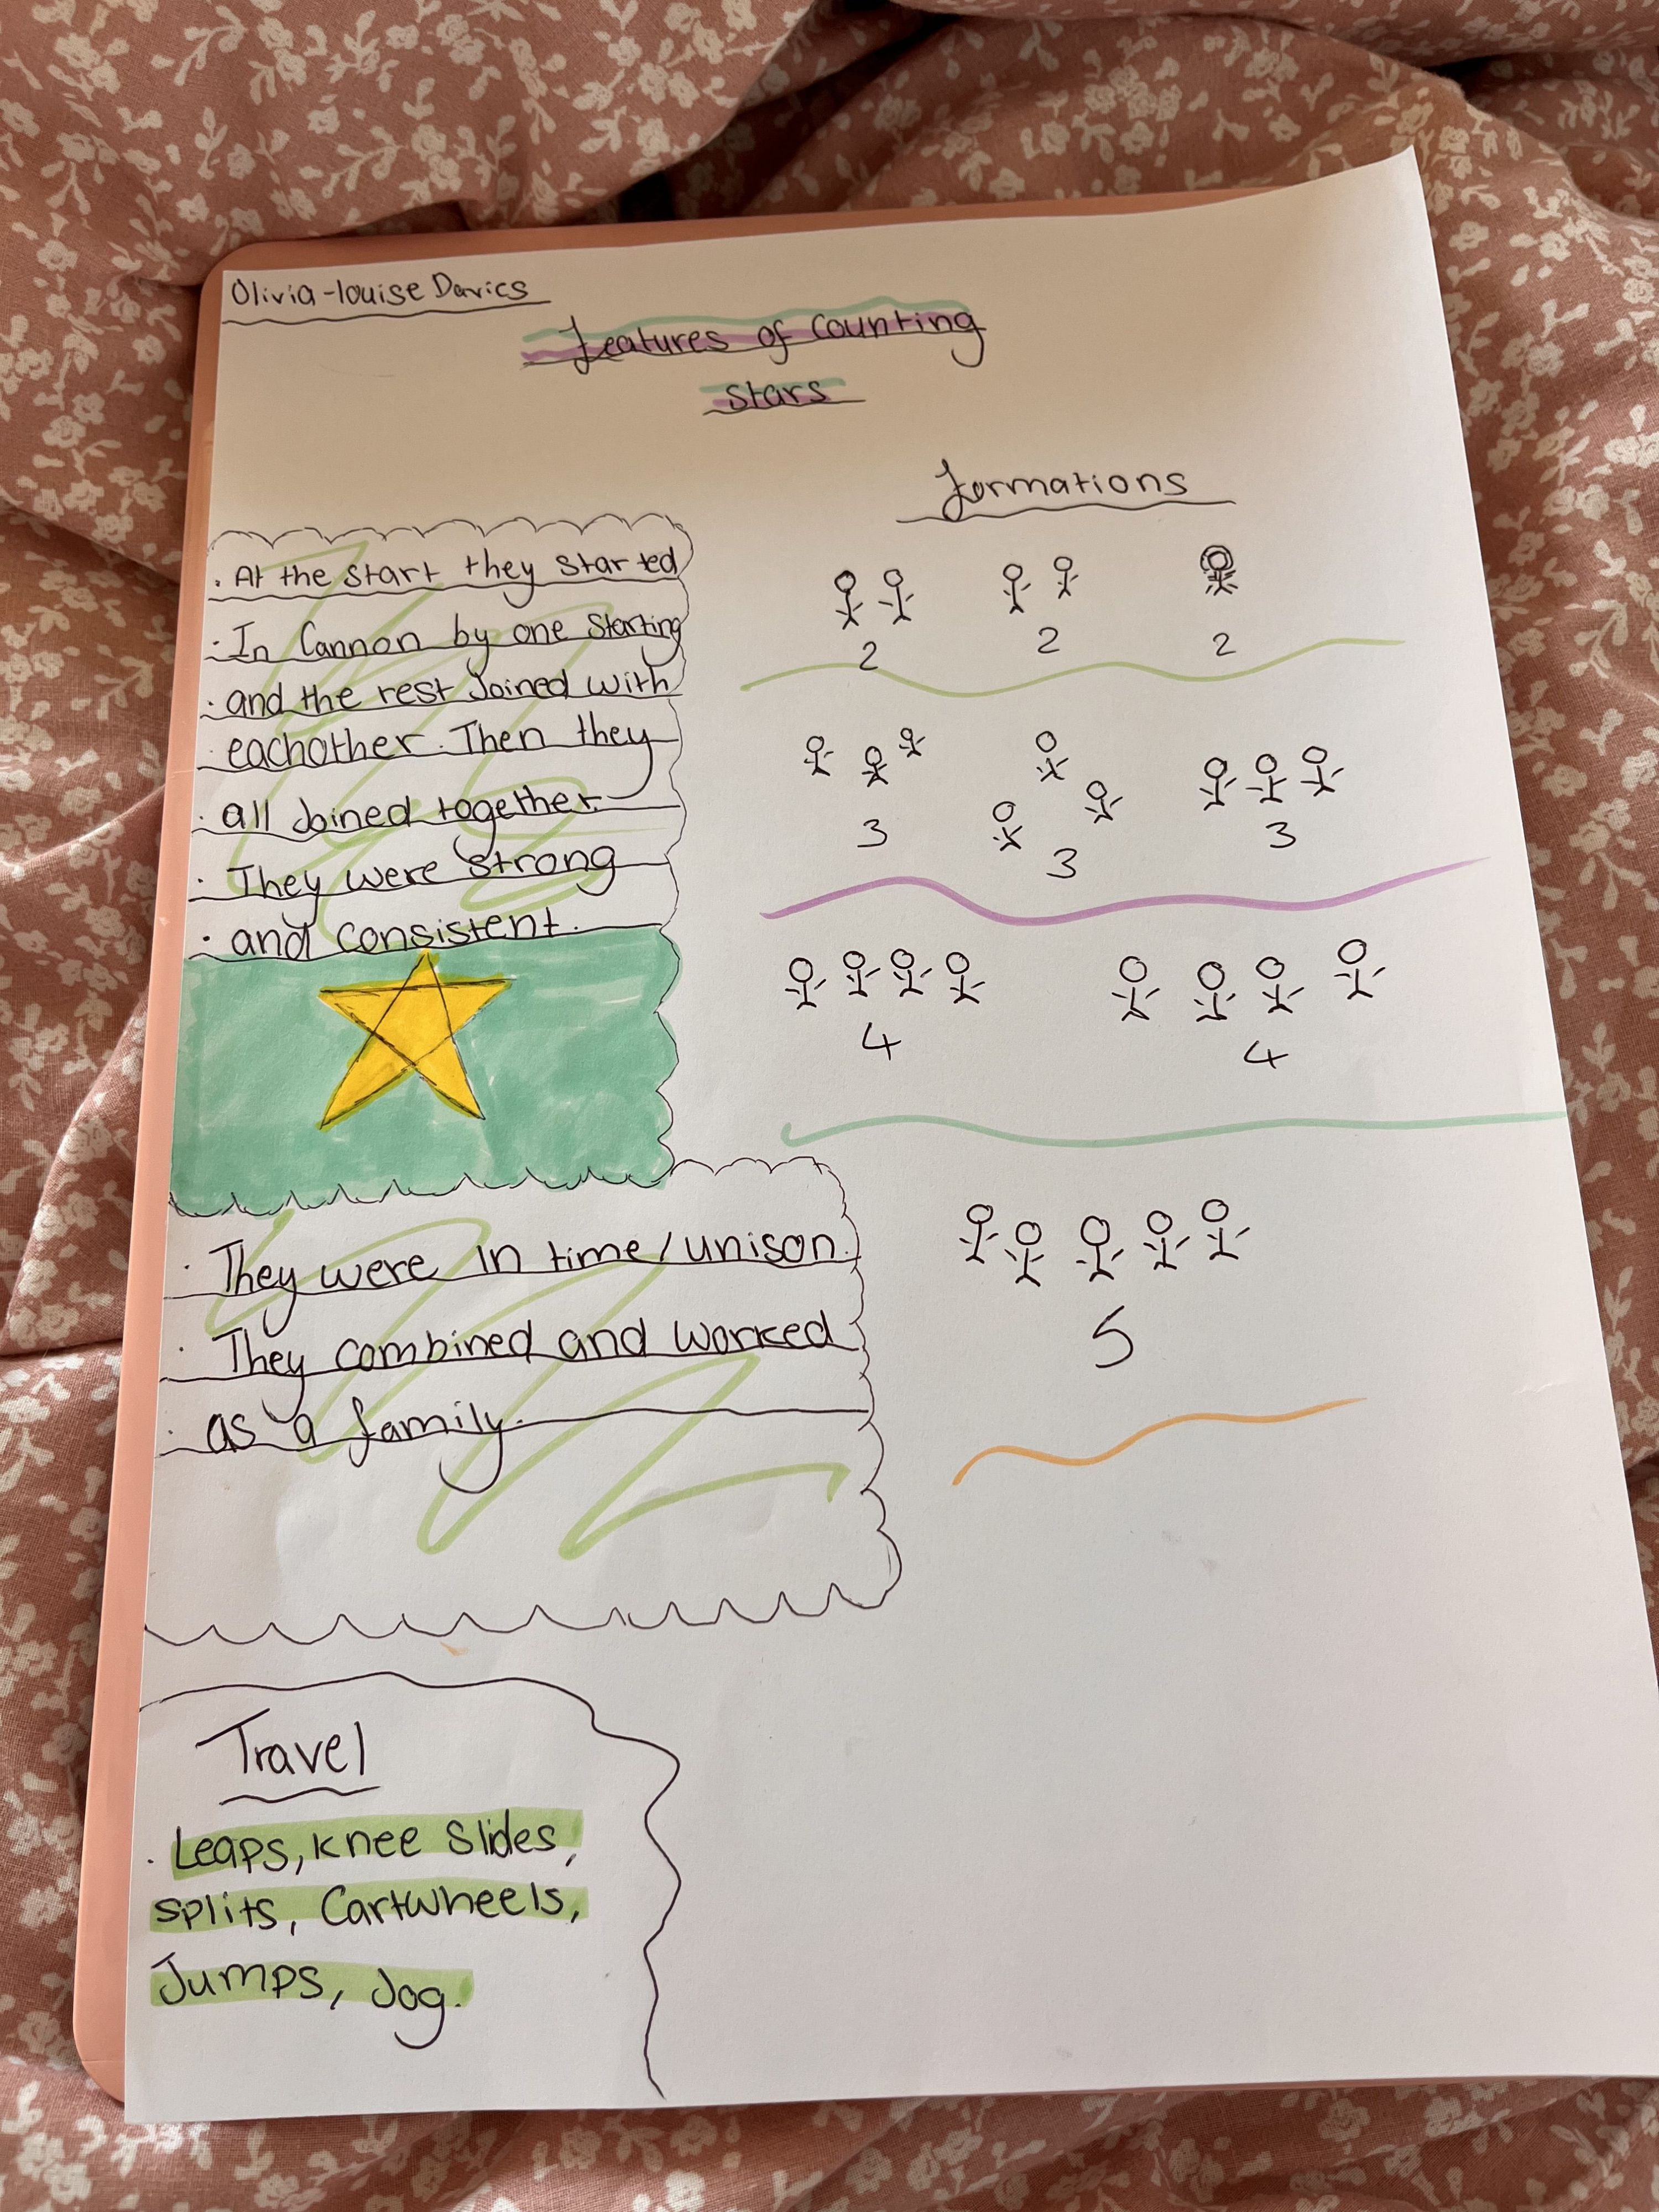 Olivia-louise Davies
Features of Counting
Stars
Formations
. At the start they started
. In Cannon by one starting
. and the rest Joined with
. eachother. Then they
. all Joined together.
. They were strong
. and consistent.
2 2 2
3 3 3
4 4
5
. They were In time/unison.
. They combined and worked
. as a family.
Travel
. Leaps, knee slides,
splits, Cartwheels,
Jumps, Jog.